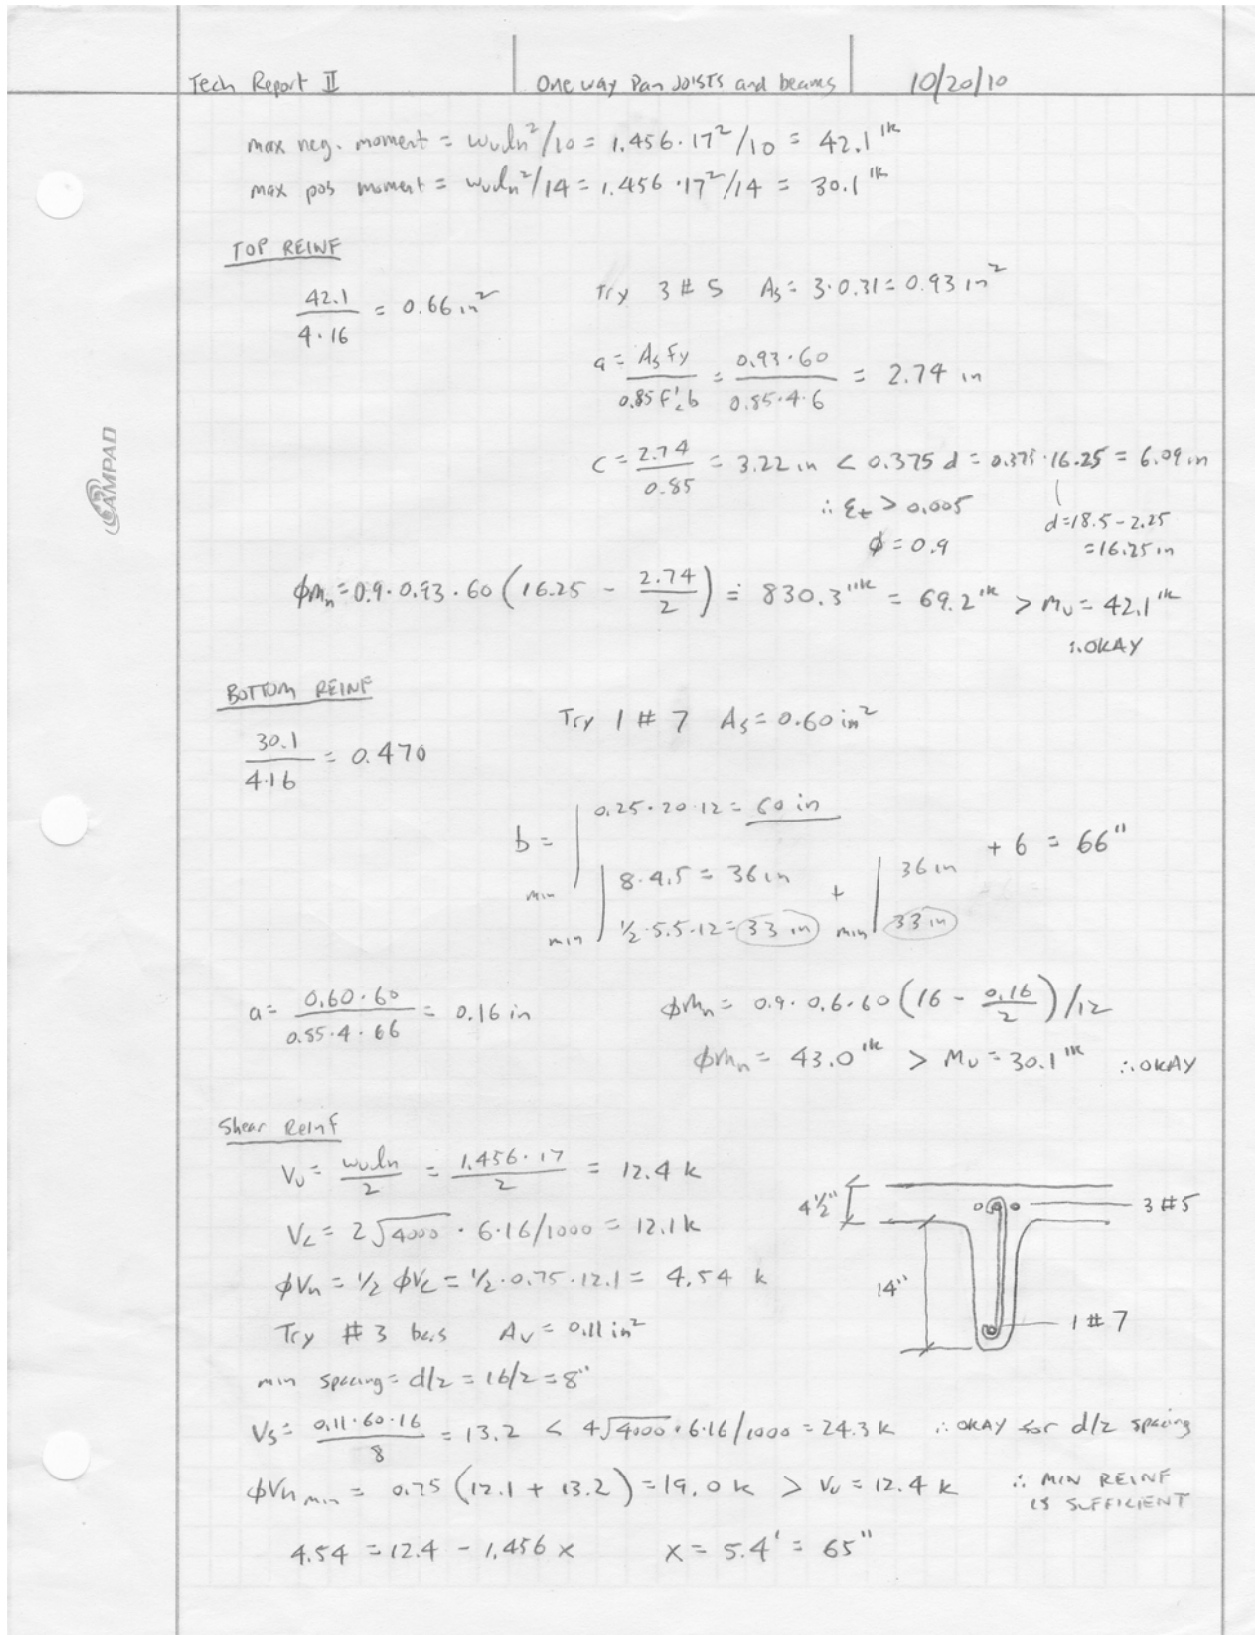 Tech Report II One way Pan Joists and beams 10/20/10
max neg. moment = wuln²/10 = 1.456·17²/10 = 42.1 'k
max pos moment = wuln²/14 = 1.456·17²/14 = 30.1 'k
TOP REINF
42.1 / 4·16 = 0.66 in² Try 3 # 5 As = 3·0.31 = 0.93 in²
a = As fy / 0.85 f'c b = 0.93·60 / 0.85·4·6 = 2.74 in
c = 2.74 / 0.85 = 3.22 in < 0.375 d = 0.375·16.25 = 6.09 in
∴ εt > 0.005 d = 18.5 - 2.25
φ = 0.9 = 16.25 in
φMn = 0.9·0.93·60 (16.25 - 2.74/2) = 830.3 "k = 69.2 'k > Mu = 42.1 'k
∴ OKAY
BOTTOM REINF
Try 1 # 7 As = 0.60 in²
30.1 / 4·16 = 0.470
0.25·20·12 = 60 in
b = + 6 = 66"
min 8·4.5 = 36 in + 36 in
min ½·5.5·12 = 33 in min 33 in
a = 0.60·60 / 0.85·4·66 = 0.16 in φMn = 0.9·0.6·60 (16 - 0.16/2)/12
φMn = 43.0 'k > Mu = 30.1 'k ∴ OKAY
Shear Reinf
Vu = wuln / 2 = 1.456·17 / 2 = 12.4 k
Vc = 2√4000 · 6·16/1000 = 12.1 k
φVn = ½ φVc = ½·0.75·12.1 = 4.54 k
Try # 3 bars Av = 0.11 in²
min spacing = d/2 = 16/2 = 8"
4½" 3 #5
14" 1 # 7
Vs = 0.11·60·16 / 8 = 13.2 < 4√4000·6·16/1000 = 24.3 k ∴ OKAY for d/2 spacing
φVn min = 0.75 (12.1 + 13.2) = 19.0 k > Vu = 12.4 k ∴ MIN REINF
IS SUFFICIENT
4.54 = 12.4 - 1.456 x x = 5.4' = 65"
AMPAD